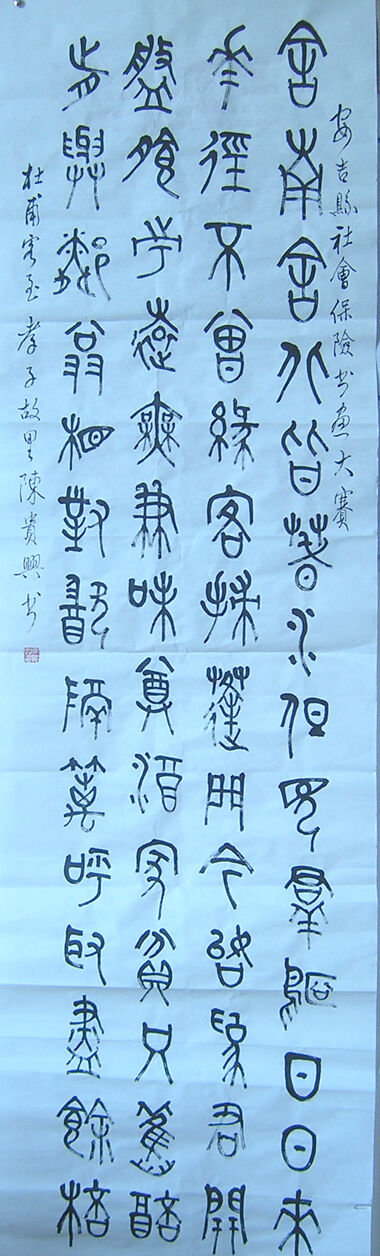 安吉縣社會保險書畫大賽
舍南舍北皆春水但見羣鷗日日來
花徑不曾緣客掃蓬門今始為君開
盤飧市遠無兼味尊酒家貧只舊醅
肯與鄰翁相對飲隔籬呼取盡餘桮
杜甫客至 孝子故里陳貴興書